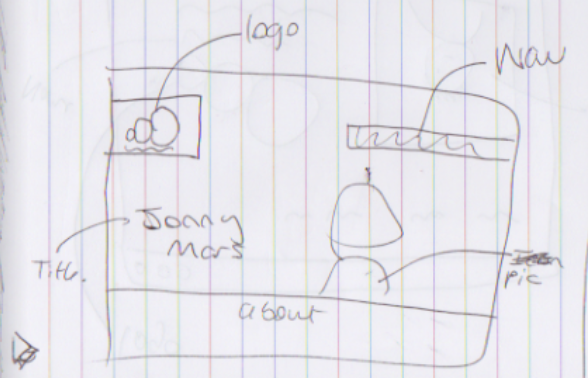 logo
Nav
Jonny
Mars
Title.
pic
about